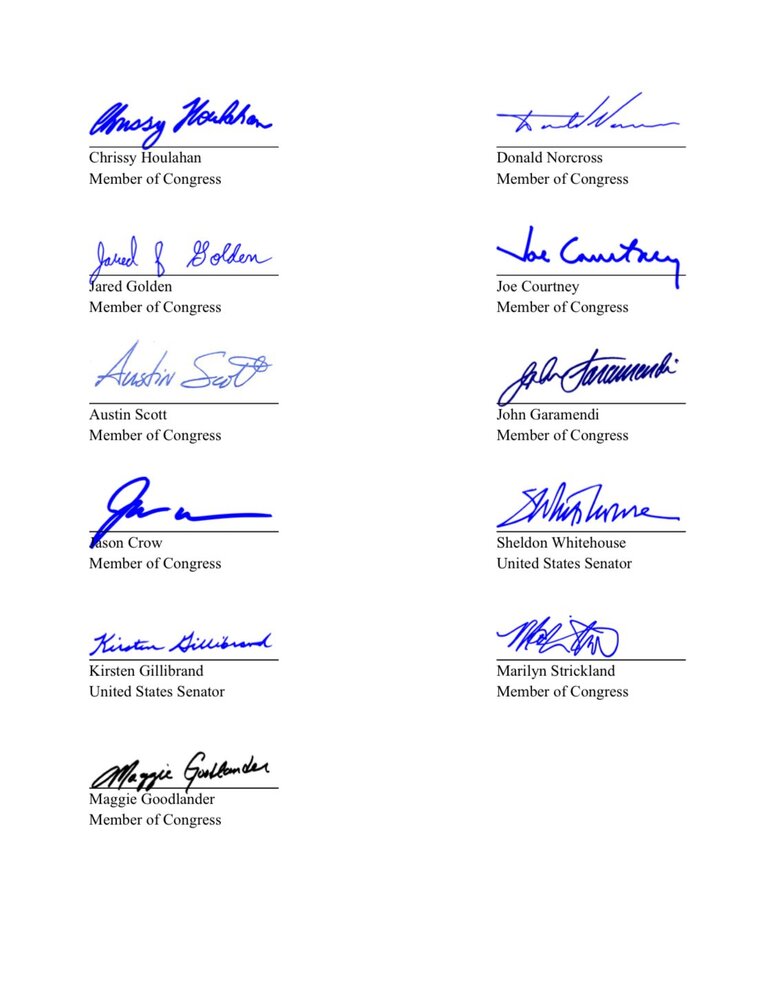 Chrissy Houlahan
Chrissy Houlahan
Member of Congress
Donald Norcross
Member of Congress
Jared Golden
Jared Golden
Member of Congress
Joe Courtney
Joe Courtney
Member of Congress
Austin Scott
Austin Scott
Member of Congress
John Garamendi
John Garamendi
Member of Congress
Jason Crow
Member of Congress
SWhitehouse
Sheldon Whitehouse
United States Senator
Kirsten Gillibrand
Kirsten Gillibrand
United States Senator
Marilyn Strickland
Member of Congress
Maggie Goodlander
Maggie Goodlander
Member of Congress